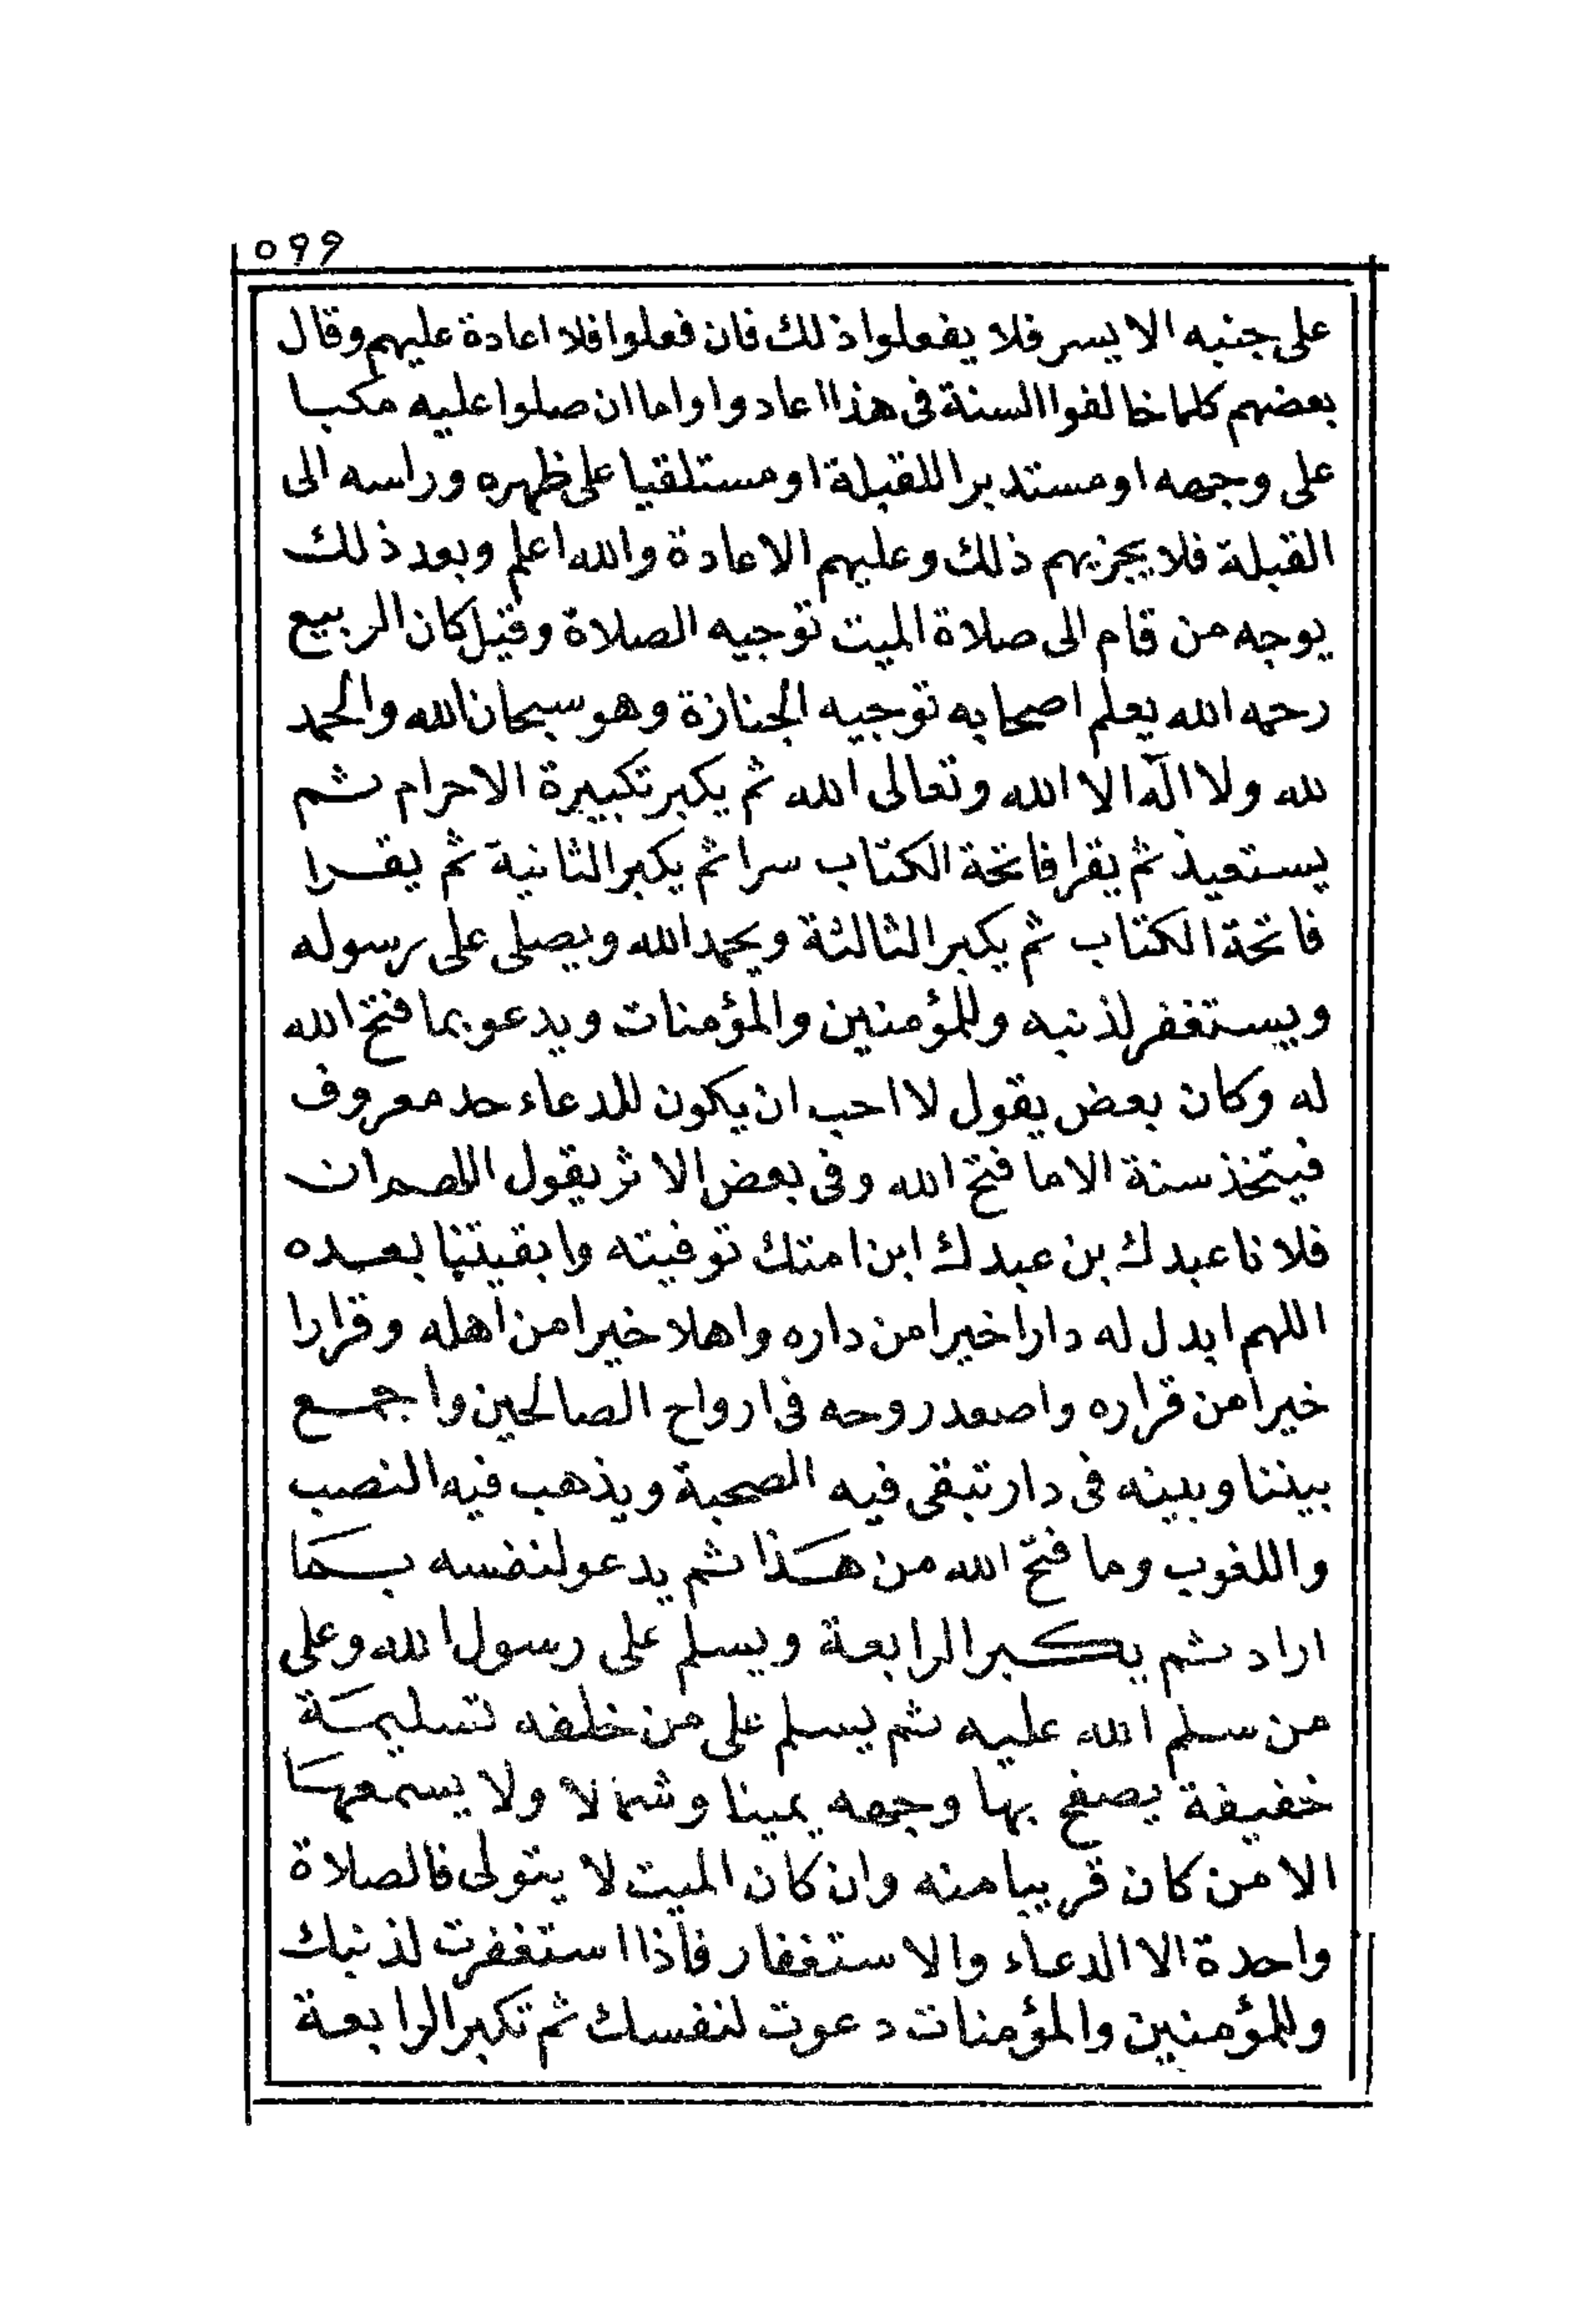 ٥٩٩
على جنبه الايسر فلا يفعلوا ذلك فان فعلوا فلا اعادة عليهم وقال
بعضهم كلما خالفوا السنة في هذا اعادوا واما ان صلوا عليه مكبا
على وجهه او مستدبرا للقبلة او مستلقيا على ظهره وراسه الى
القبلة فلا يجزيهم ذلك وعليهم الاعادة والله اعلم وبعد ذلك
يوجه من قام الى صلاة الميت توجيه الصلاة وقيل كان الربيع
رحمه الله يعلم اصحابه توجيه الجنازة وهو سبحان الله والحمد
لله ولا اله الا الله وتعالى الله ثم يكبر تكبيرة الاحرام ثم
يستعيذ ثم يقرا فاتحة الكتاب سرا ثم يكبر الثانية ثم يقرا
فاتحة الكتاب ثم يكبر الثالثة ويحمد الله ويصلى على رسوله
ويستغفر لذنبه وللمؤمنين والمؤمنات ويدعو بما فتح الله
له وكان بعض يقول لا احب ان يكون للدعاء حد معروف
فيتخذ سنة الا ما فتح الله وفى بعض الاثر يقول اللهم ان
فلانا عبدك بن عبدك ابن امتك توفيته وابقيتنا بعده
اللهم ابدل له دارا خيرا من داره واهلا خيرا من اهله وقرارا
خيرا من قراره واصعد روحه فى ارواح الصالحين واجمع
بيننا وبينه فى دار تبقى فيه الصحبة ويذهب فيه النصب
واللغوب وما فتح الله من هَذا ثم يدعو لنفسه بمَا
اراد ثم يكبر الرابعة ويسلم على رسول الله وعلى
من سلم الله عليه ثم يسلم على من خلفه تسليمَة
خفيفة يصفح بها وجهه يمينا وشمالا ولا يسمعهَا
الا من كان قريبا منه وان كان الميت لا يتولى فالصلاة
واحدة الا الدعاء والاستغفار فاذا استغفرت لذنبك
وللمؤمنين والمؤمنات دعوت لنفسك ثم تكبر الرابعة